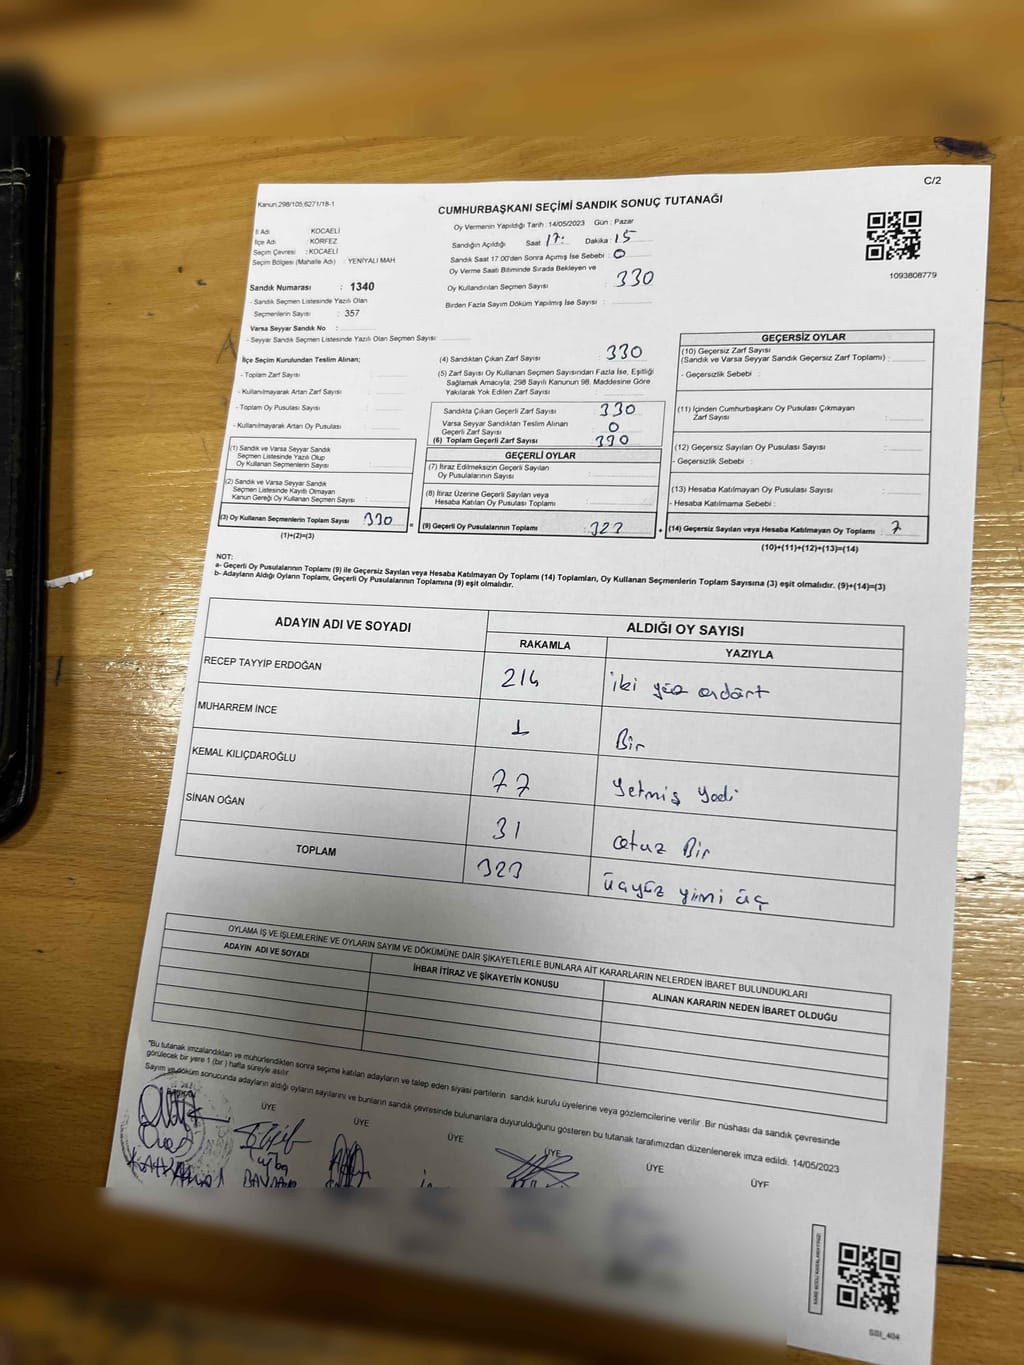 C/2
Kanun:298/105;6271/18-1
CUMHURBAŞKANI SEÇİMİ SANDIK SONUÇ TUTANAĞI
İl Adı : KOCAELİ
İlçe Adı : KÖRFEZ
Seçim Çevresi : KOCAELİ
Seçim Bölgesi (Mahalle Adı) : YENİYALI MAH
Oy Vermenin Yapıldığı Tarih : 14/05/2023 Gün : Pazar
Sandığın Açıldığı Saat 17: Dakika : 15
Sandık Saat 17:00'den Sonra Açımış İse Sebebi : 0
Oy Verme Saati Bitiminde Sırada Bekleyen ve
Oy Kullandırılan Seçmen Sayısı : 330
Birden Fazla Sayım Döküm Yapılmış İse Sayısı :
1093808779
Sandık Numarası : 1340
- Sandık Seçmen Listesinde Yazılı Olan
Seçmenlerin Sayısı : 357
Varsa Seyyar Sandık No :
- Seyyar Sandık Seçmen Listesinde Yazılı Olan Seçmen Sayısı:
İlçe Seçim Kurulundan Teslim Alınan;
- Toplam Zarf Sayısı :
- Kullanılmayarak Artan Zarf Sayısı :
- Toplam Oy Pusulası Sayısı :
- Kullanılmayarak Artan Oy Pusulası :
(1) Sandık ve Varsa Seyyar Sandık
Seçmen Listesinde Yazılı Olup
Oy Kullanan Seçmenlerin Sayısı :
(2) Sandık ve Varsa Seyyar Sandık
Seçmen Listesinde Kayıtlı Olmayan
Kanun Gereği Oy Kullanan Seçmen Sayısı :
(3) Oy Kullanan Seçmenlerin Toplam Sayısı : 330
(1)+(2)=(3)
(4) Sandıktan Çıkan Zarf Sayısı : 330
(5) Zarf Sayısı Oy Kullanan Seçmen Sayısından Fazla İse, Eşitliği
Sağlamak Amacıyla, 298 Sayılı Kanunun 98. Maddesine Göre
Yakılarak Yok Edilen Zarf Sayısı :
Sandıkta Çıkan Geçerli Zarf Sayısı : 330
Varsa Seyyar Sandıktan Teslim Alınan
Geçerli Zarf Sayısı : 0
(6) Toplam Geçerli Zarf Sayısı : 330
GEÇERLİ OYLAR
(7) İtiraz Edilmeksizin Geçerli Sayılan
Oy Pusulalarının Sayısı :
(8) İtiraz Üzerine Geçerli Sayılan veya
Hesaba Katılan Oy Pusulası Sayısı :
= (9) Geçerli Oy Pusulalarının Toplamı : 323
GEÇERSİZ OYLAR
(10) Geçersiz Zarf Sayısı
(Sandık ve Varsa Seyyar Sandık Geçersiz Zarf Toplamı) :
- Geçersizlik Sebebi :
(11) İçinden Cumhurbaşkanı Oy Pusulası Çıkmayan
Zarf Sayısı :
(12) Geçersiz Sayılan Oy Pusulası Sayısı :
- Geçersizlik Sebebi :
(13) Hesaba Katılmayan Oy Pusulası Sayısı :
- Hesaba Katılmama Sebebi :
+ (14) Geçersiz Sayılan veya Hesaba Katılmayan Oy Toplamı : 7
(10)+(11)+(12)+(13)=(14)
NOT:
a- Geçerli Oy Pusulalarının Toplamı (9) ile Geçersiz Sayılan veya Hesaba Katılmayan Oy Toplamı (14) Toplamları, Oy Kullanan Seçmenlerin Toplam Sayısına (3) eşit olmalıdır. (9)+(14)=(3)
b- Adayların Aldığı Oyların Toplamı, Geçerli Oy Pusulalarının Toplamına (9) eşit olmalıdır.
ADAYIN ADI VE SOYADI
ALDIĞI OY SAYISI
RAKAMLA YAZIYLA
RECEP TAYYİP ERDOĞAN 214 iki yüz ondört
MUHARREM İNCE 1 Bir
KEMAL KILIÇDAROĞLU 77 yetmiş yedi
SİNAN OĞAN 31 otuz Bir
TOPLAM 323 üçyüz yirmi üç
OYLAMA İŞ VE İŞLEMLERİNE VE OYLARIN SAYIM VE DÖKÜMÜNE DAİR ŞİKAYETLERLE BUNLARA AİT KARARLARIN NELERDEN İBARET BULUNDUKLARI
ADAYIN ADI VE SOYADI İHBAR İTİRAZ VE ŞİKAYETİN KONUSU ALINAN KARARIN NEDEN İBARET OLDUĞU
"Bu tutanak imzalandıktan ve mühürlendikten sonra seçime katılan adayların ve talep eden siyasi partilerin sandık kurulu üyelerine veya gözlemcilerine verilir .Bir nüshası da sandık çevresinde
görülecek bir yere 1 (bir ) hafta süreyle asılır
Sayım ve döküm sonucunda adayların aldığı oyların sayılarını ve bunların sandık çevresinde bulunanlara duyurulduğunu gösteren bu tutanak tarafımızdan düzenlenerek imza edildi. 14/05/2023
ÜYE ÜYE ÜYE ÜYE ÜYE ÜYE
SSI_404